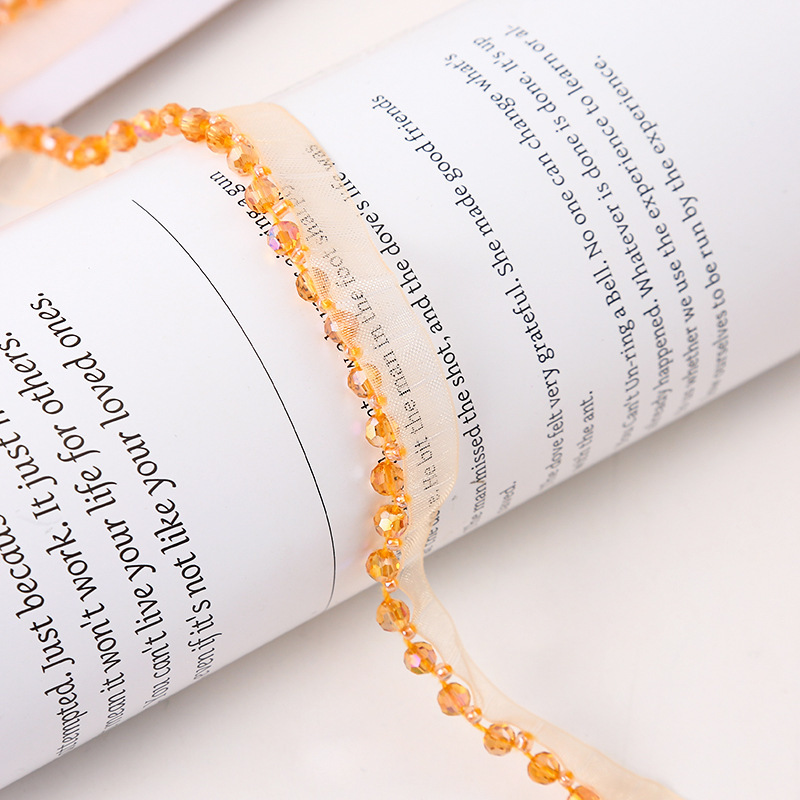 attempted. Just because
mean it won't work. It just
You can't live your life for others.
even if it's not like your loved ones.
a gun
man in the foot sharply
He bit the
missed the shot, and the dove's life was
saved.
The dove felt very grateful. She made good friends
with the ant.
You Can't Un-ring a Bell. No one can change what's
already happened. Whatever is done is done. It's up
to us whether we use the experience to learn or al-
ourselves to be run by the experience.